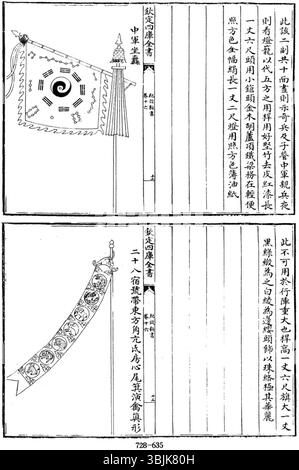 此旗二副共十面晝則示奇兵及子營中軍親兵夜
則看燈籠以代五方之用桿用好堅竹去皮紅漆長
一丈六尺頭用小鎗頭金木胡盧項鐵梁務在輕便
照方色全幅絹長一丈二尺燈用照方色薄油紙
欽定四庫全書
紀效新書
卷十六
中軍坐纛
此不可用於行陣重大也桿高一丈六尺旗大一丈
黑緑緞為之白綾為邊纓頭飾以珠絡極其華麗
欽定四庫全書
紀效新書
卷十六
二十八宿號帶東方角亢氐房心尾箕演禽真形
728-635
alamy
Image ID: 2BJK80H
www.alamy.com